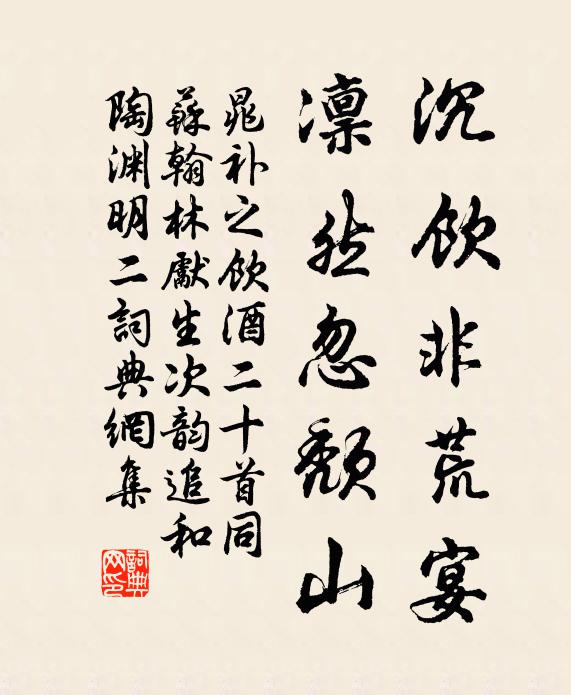 沉飲非荒宴
凛然忽頹山
晁补之飲酒二十首同
蘇翰林獻生次韵追和
陶渊明二詞典網集
詞典网印